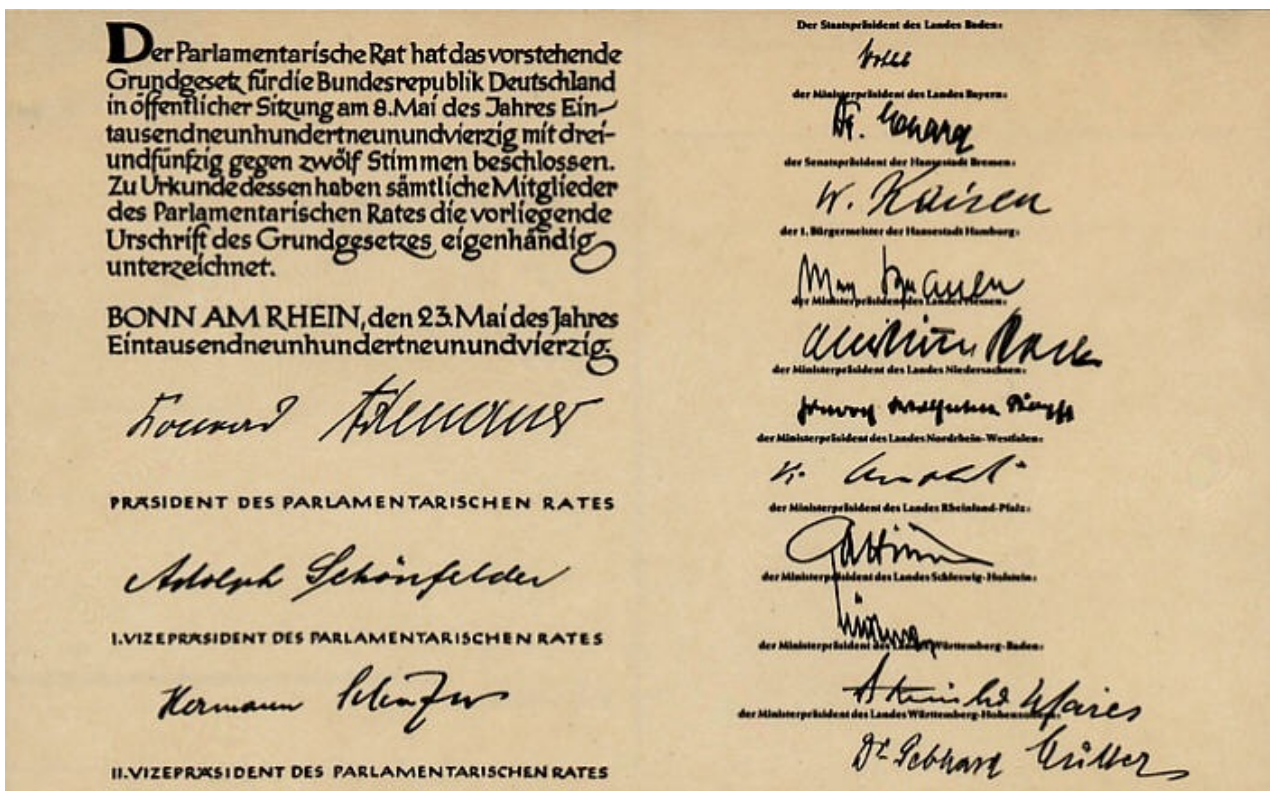 Der Parlamentarische Rat hat das vorstehende
Grundgesetz für die Bundesrepublik Deutschland
in öffentlicher Sitzung am 8. Mai des Jahres Ein-
tausendneunhundertneunundvierzig mit drei-
undfünfzig gegen zwölf Stimmen beschlossen.
Zu Urkunde dessen haben sämtliche Mitglieder
des Parlamentarischen Rates die vorliegende
Urschrift des Grundgesetzes eigenhändig
unterzeichnet.
BONN AM RHEIN, den 23. Mai des Jahres
Eintausendneunhundertneunundvierzig
Konrad Adenauer
PRÄSIDENT DES PARLAMENTARISCHEN RATES
Adolph Schönfelder
I. VIZEPRÄSIDENT DES PARLAMENTARISCHEN RATES
Hermann Schäfer
II. VIZEPRÄSIDENT DES PARLAMENTARISCHEN RATES
Der Staatspräsident des Landes Baden:
der Ministerpräsident des Landes Bayern:
Dr. Ehard
der Senatspräsident der Hansestadt Bremen:
W. Kaisen
der 1. Bürgermeister der Hansestadt Hamburg:
Max Brauer
der Ministerpräsident des Landes Hessen:
der Ministerpräsident des Landes Niedersachsen:
der Ministerpräsident des Landes Nordrhein-Westfalen:
K. Arnold
der Ministerpräsident des Landes Rheinland-Pfalz:
Altmeier
der Ministerpräsident des Landes Schleswig-Holstein:
der Ministerpräsident des Landes Württemberg-Baden:
Reinhold Maier
der Ministerpräsident des Landes Württemberg-Hohenzollern:
Dr. Gebhard Müller